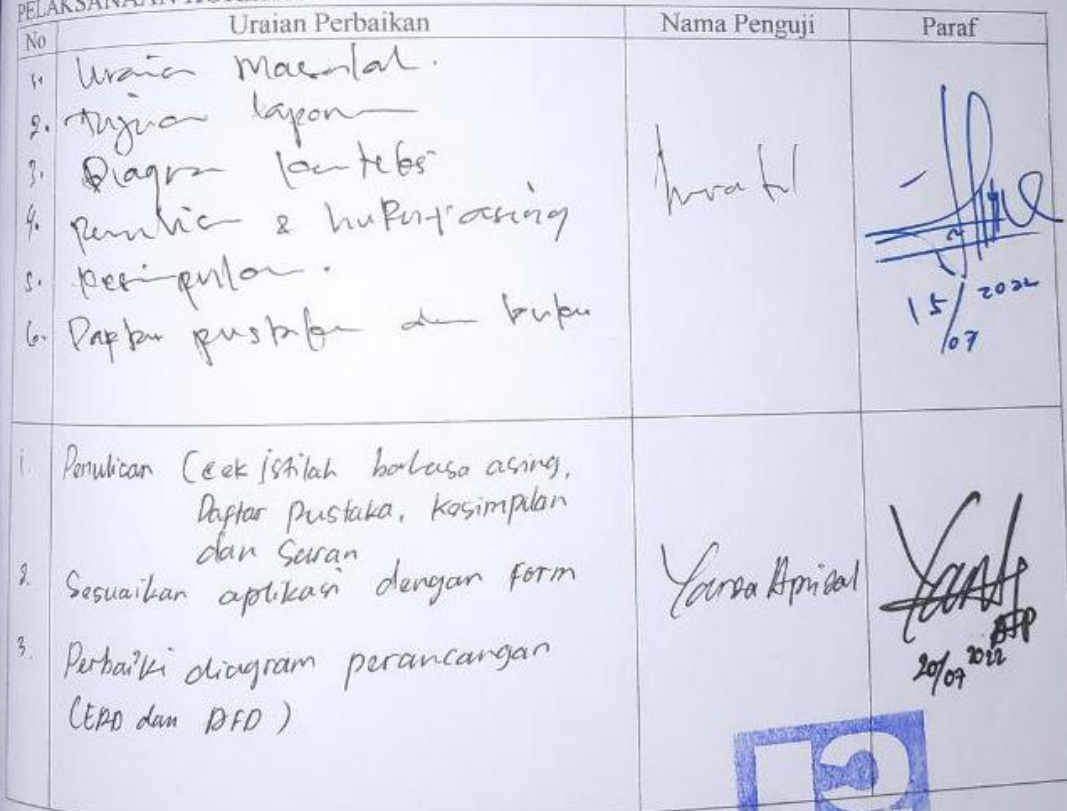 PELAKSANAAN
No Uraian Perbaikan Nama Penguji Paraf
1. Uraian Masalah.
2. Tujuan lapora
3. Diagram konteks
4. Penulisan & huruf asing
5. Kesimpulan.
6. Daftar pustaka dan buku
15/07 2022
1. Penulisan (cek istilah bahasa asing,
Daftar Pustaka, Kesimpulan
dan Saran
2. Sesuaikan aplikasi dengan Form
3. Perbaiki diagram perancangan
(ERD dan DFD)
20/07 2022